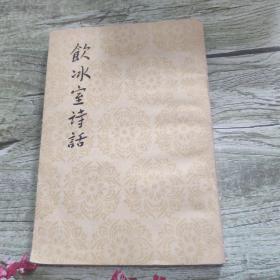 飲冰室詩話